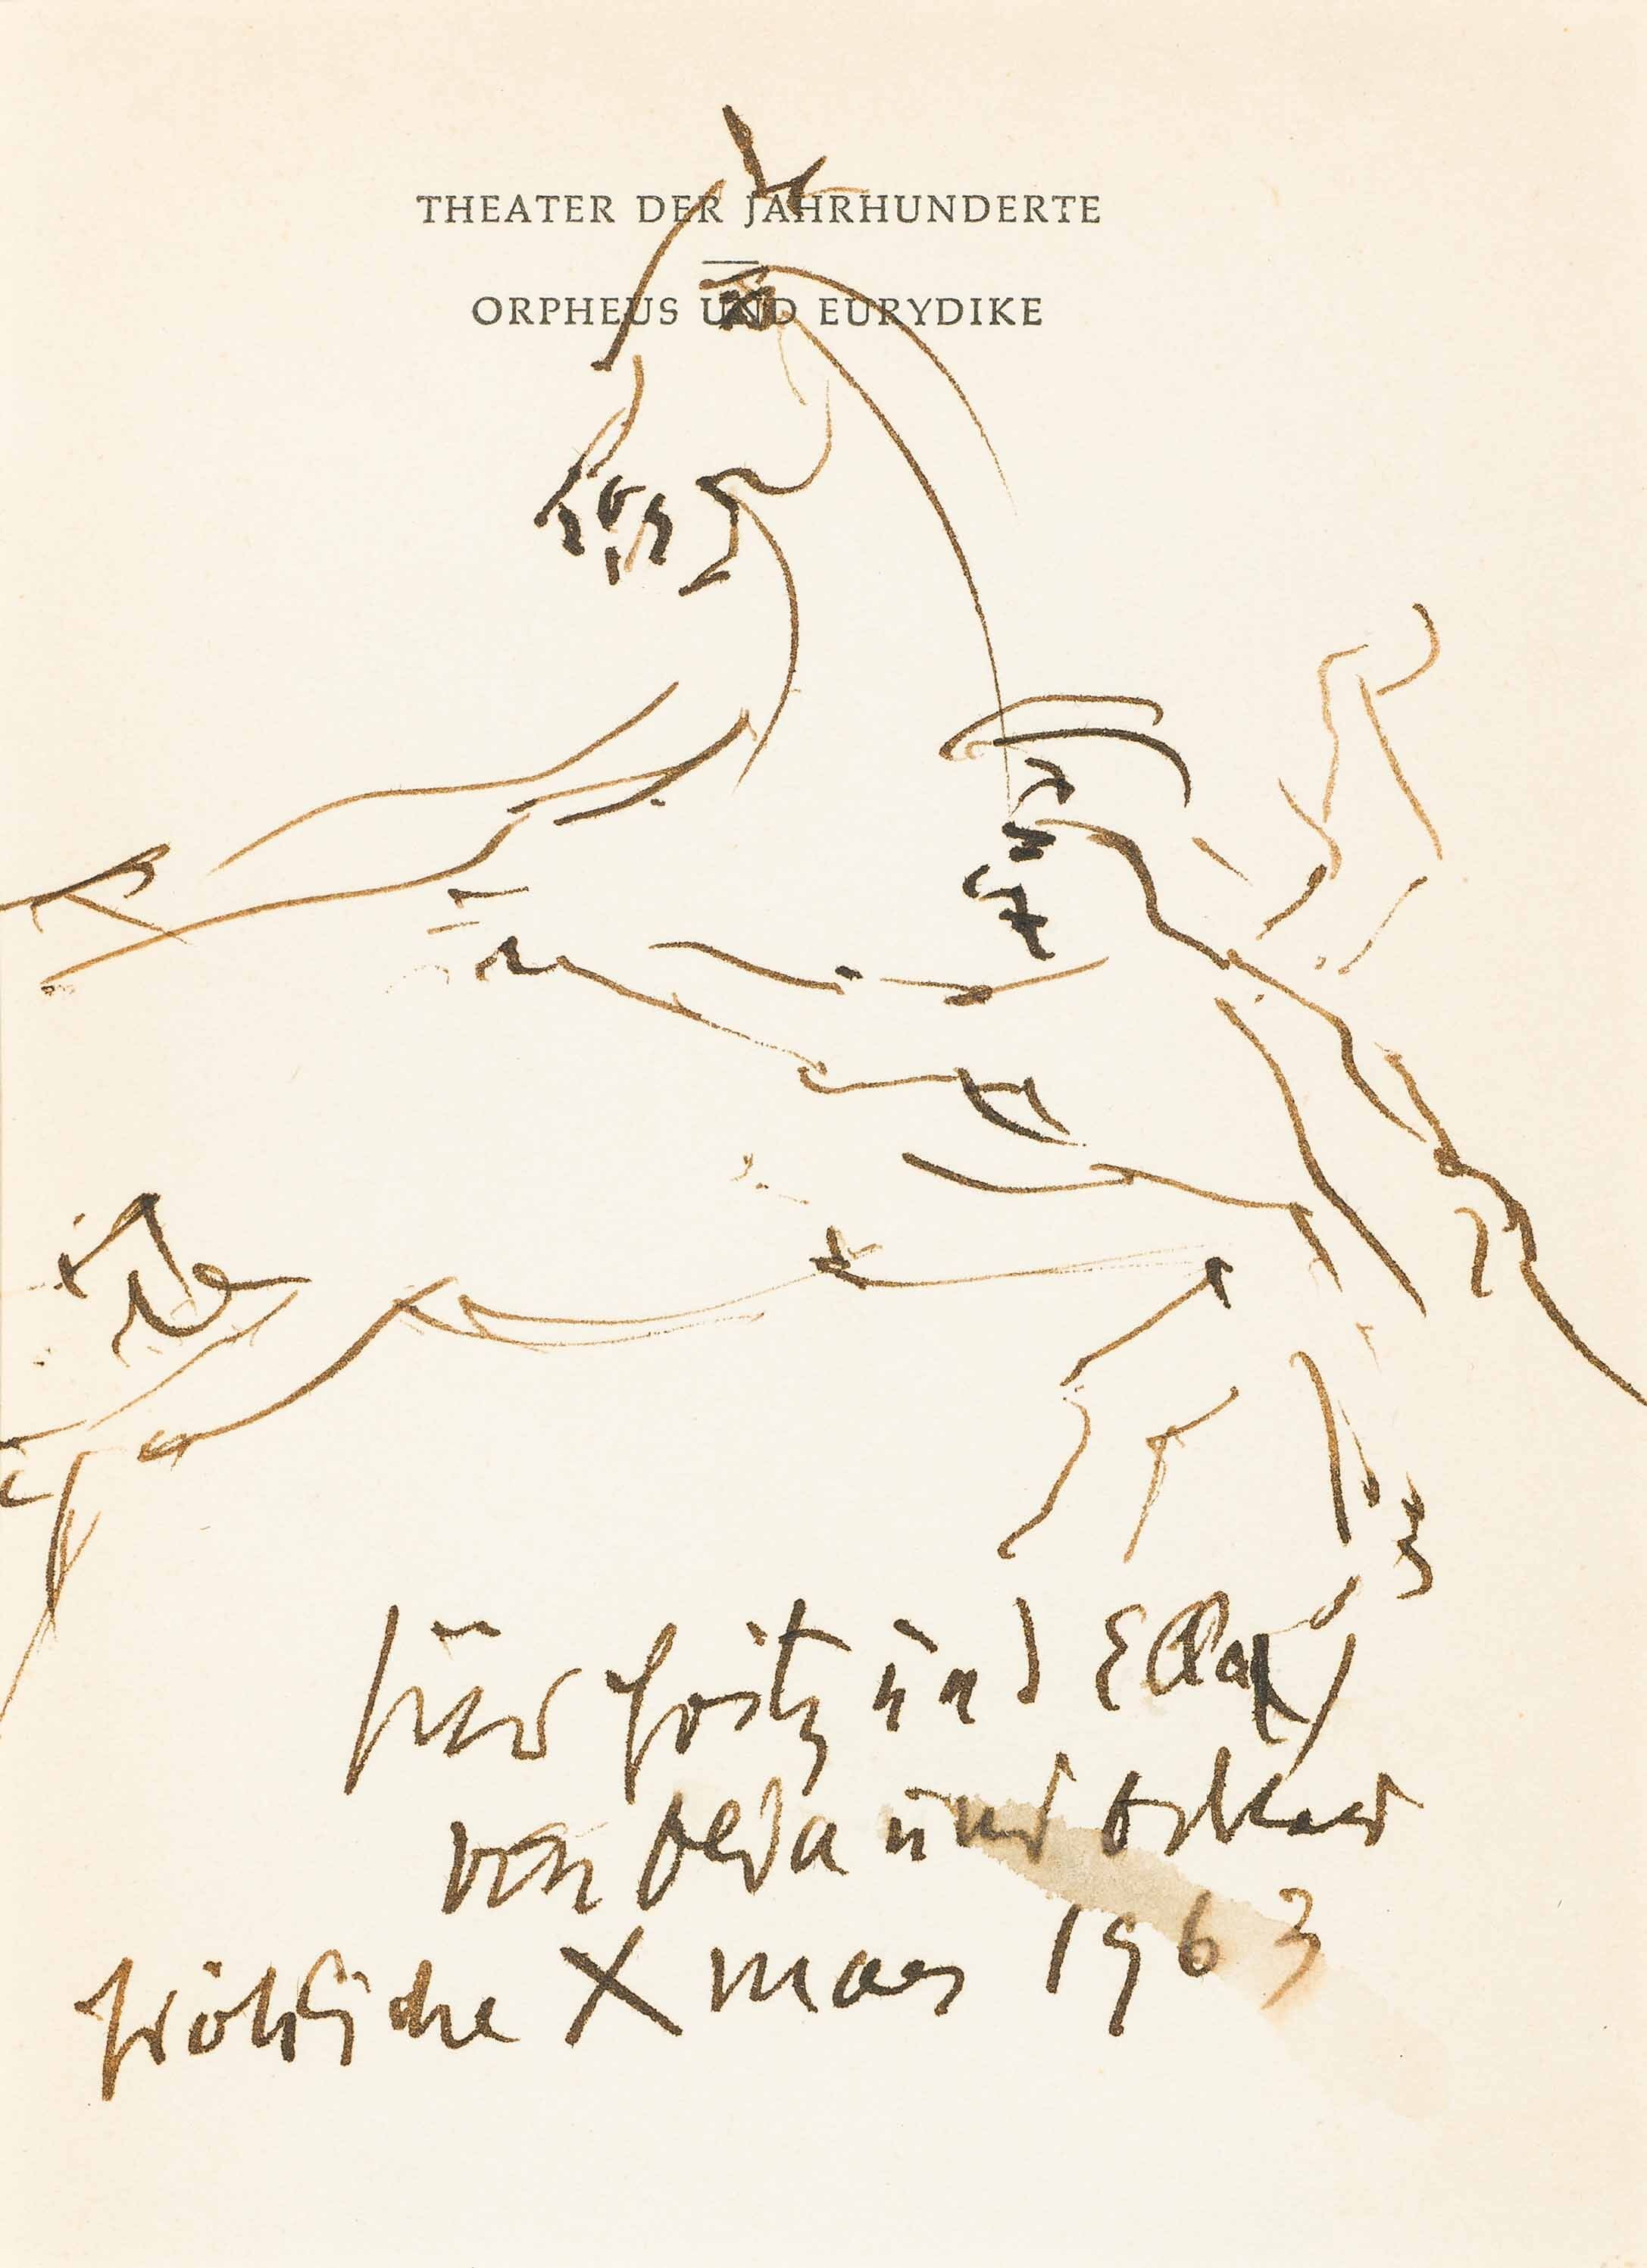 THEATER DER JAHRHUNDERTE
ORPHEUS UND EURYDIKE
für Fritz und Ella
von Olda und Oskar
fröhliche Xmas 1963